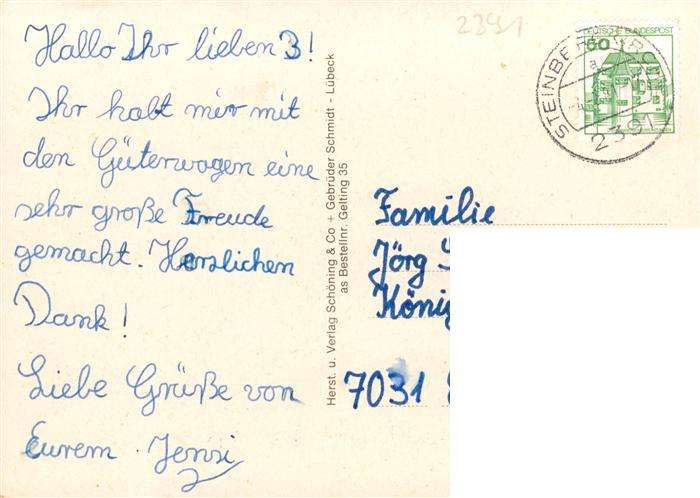 Hallo Ihr lieben 3!
Ihr habt mir mit
den Güterwagen eine
sehr große Freude
gemacht. Herzlichen
Dank!
Liebe Grüße von
Eurem Jensi
Herst. u. Verlag Schöning & Co + Gebrüder Schmidt - Lübeck
as Bestellnr. Gelting 35
2391
DEUTSCHE BUNDESPOST
60
2391
Familie
Jörg
König
7031